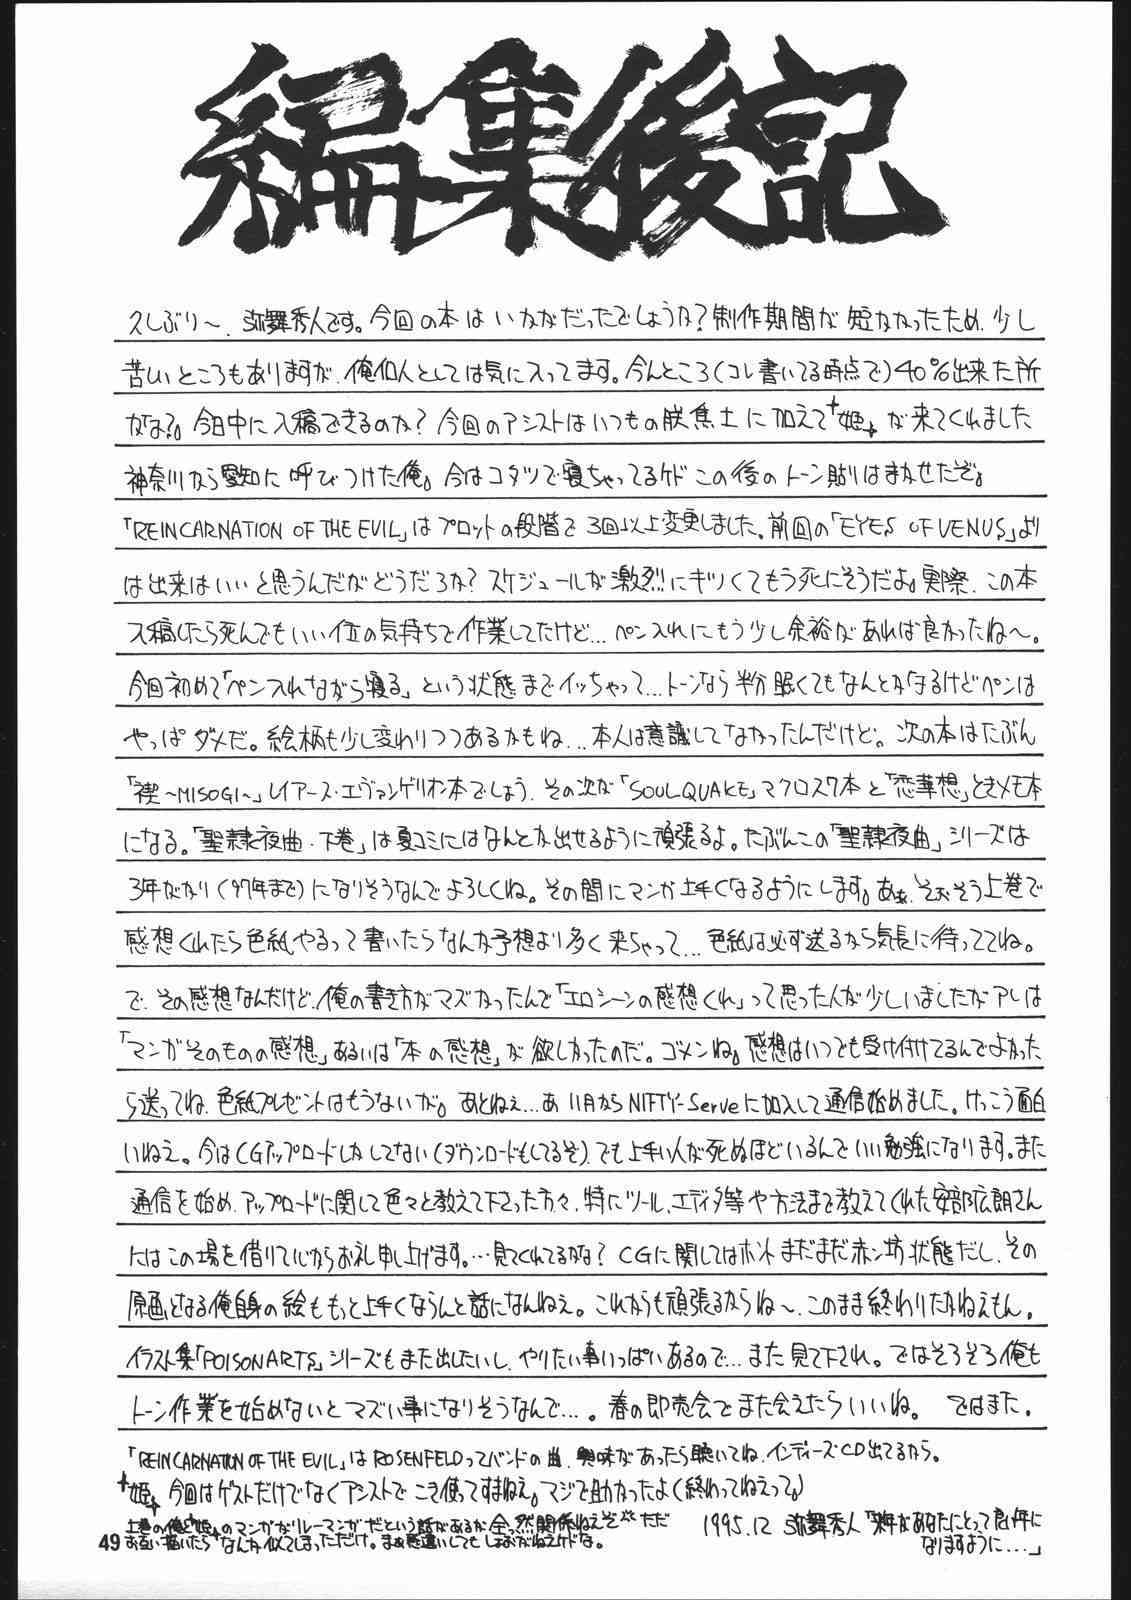 編集後記
久しぶり〜、弥舞秀人です。今回の本はいかがだったでしょうか?制作期間が短かかったため、少し
苦しいところもありますが、俺個人としては気に入ってます。今んところ(コレ書いてる時点で)40%出来た所
かな?。今日中に入稿できるのか?今回のアシストはいつもの朕焦土に加えて“姫”が来てくれました
神奈川から愛知に呼びつけた俺。今はコタツで寝ちゃってるケド この後のトーン貼りはまかせたぞ。
「REINCARNATION OF THE EVIL」はプロットの段階で3回以上変更しました。前回の「EYES OF VENUS」より
は出来はいいと思うんだがどうだろな?スケジュールが激烈!!にキツくてもう死にそうだよ。実際、この本
入稿したら死んでもいい位の気持ちで作業してたけど…ペン入れにもう少し余裕があれば良かったね〜。
今回初めて「ペン入れながら寝る」という状態までイッちゃって…トーンなら半分眠くてもなんとかなるけどペンは
やっぱダメだ。絵柄も少し変わりつつあるかもね…本人は意識してなかったんだけど。次の本はたぶん
「禊〜MISOGI〜」レイアース・エヴァンゲリオン本でしょう。その次が「SOUL QUAKE」マクロス7本と「恋華想」ときメモ本
になる。「聖隷夜曲・下巻」は夏コミにはなんとか出せるように頑張るよ。たぶんこの「聖隷夜曲」シリーズは
3年がかり(97年まで)になりそうなんでよろしくね。その間にマンガ上手くなるようにします。あぁ、そおそう上巻で
感想くれたら色紙やるって書いたらなんか予想より多く来ちゃって…色紙は必ず送るから気長に待っててね。
で、その感想なんだけど、俺の書き方がマズかったんで「エロシーンの感想くれ」って思った人が少しいましたがアレは
「マンガそのものの感想」あるいは「本の感想」が欲しかったのだ。ゴメンね。感想はいつでも受け付けてるんでよかった
ら送ってね、色紙プレゼントはもうないが。あとねぇ…あ 11月からNIFTY-Serveに加入して通信始めました。けっこう面白
いねえ。今はCGアップロードしかしてない(ダウンロードもしてるぞ)、でも上手い人が死ぬほどいるんでいい勉強になります。また
通信を始め、アップロードに関して色々と教えて下さった方々、特にツール、エディタ等や方法まで教えてくれた安部広朗さん
にはこの場を借りて心からお礼申し上げます。…見てくれてるかな?CGに関してはホントまだまだ赤ン坊状態だし、その
原画となる俺自身の絵ももっと上手くならんと話になんねえ。これからも頑張るからね〜、このまま終わりたかねえもん。
イラスト集「POISON ARTS」シリーズもまた出したいし、やりたい事いっぱいあるので…また見て下され。ではそろそろ俺も
トーン作業を始めないとマズい事になりそうなんで…。春の即売会でまた会えたらいいね。 ではまた。
「REINCARNATION OF THE EVIL」はROSENFELDってバンドの曲、興味があったら聴いてね、インディーズCD出てるから。
“姫”、今回はゲストだけでなくアシストでこき使ってすまねえ。マジで助かったよ(終わってねえって。)
上巻の俺と“姫”のマンガがリレーマンガだという話があるが全っ然関係ねえぞ ただ
お互い描いたらなんか似てしまっただけ。まぁ感違いしてもしょおがねえけどな。
1995.12 弥舞秀人「来年があなたにとって良い年に
なりますように…」
49